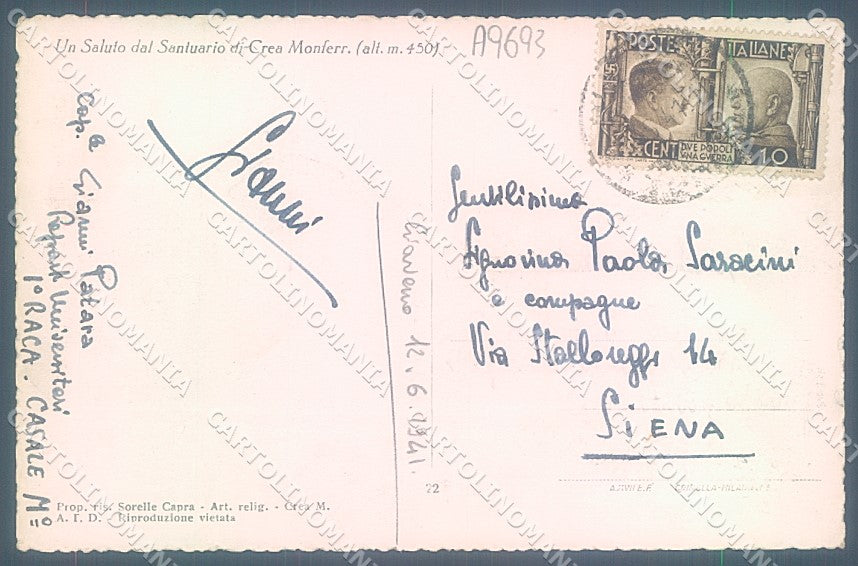 Un Saluto dal Santuario di Crea Monferr. (alt. m. 450)
A9693
POSTE ITALIANE
CENT DVE POPOLI 10
VNA GVERRA
Gianni
Cap.le Gianni Patara
Reparti Universitari
1º RACA. CASALE Mº
12.6.1941.
Gentilissima
Signorina Paola Saracini
e compagne
Via Stalloreggi 14
SIENA
22
Prop. ris. Sorelle Capra - Art. relig. - Crea M.
A. F. D. - Riproduzione vietata
CARTOLINOMANIA